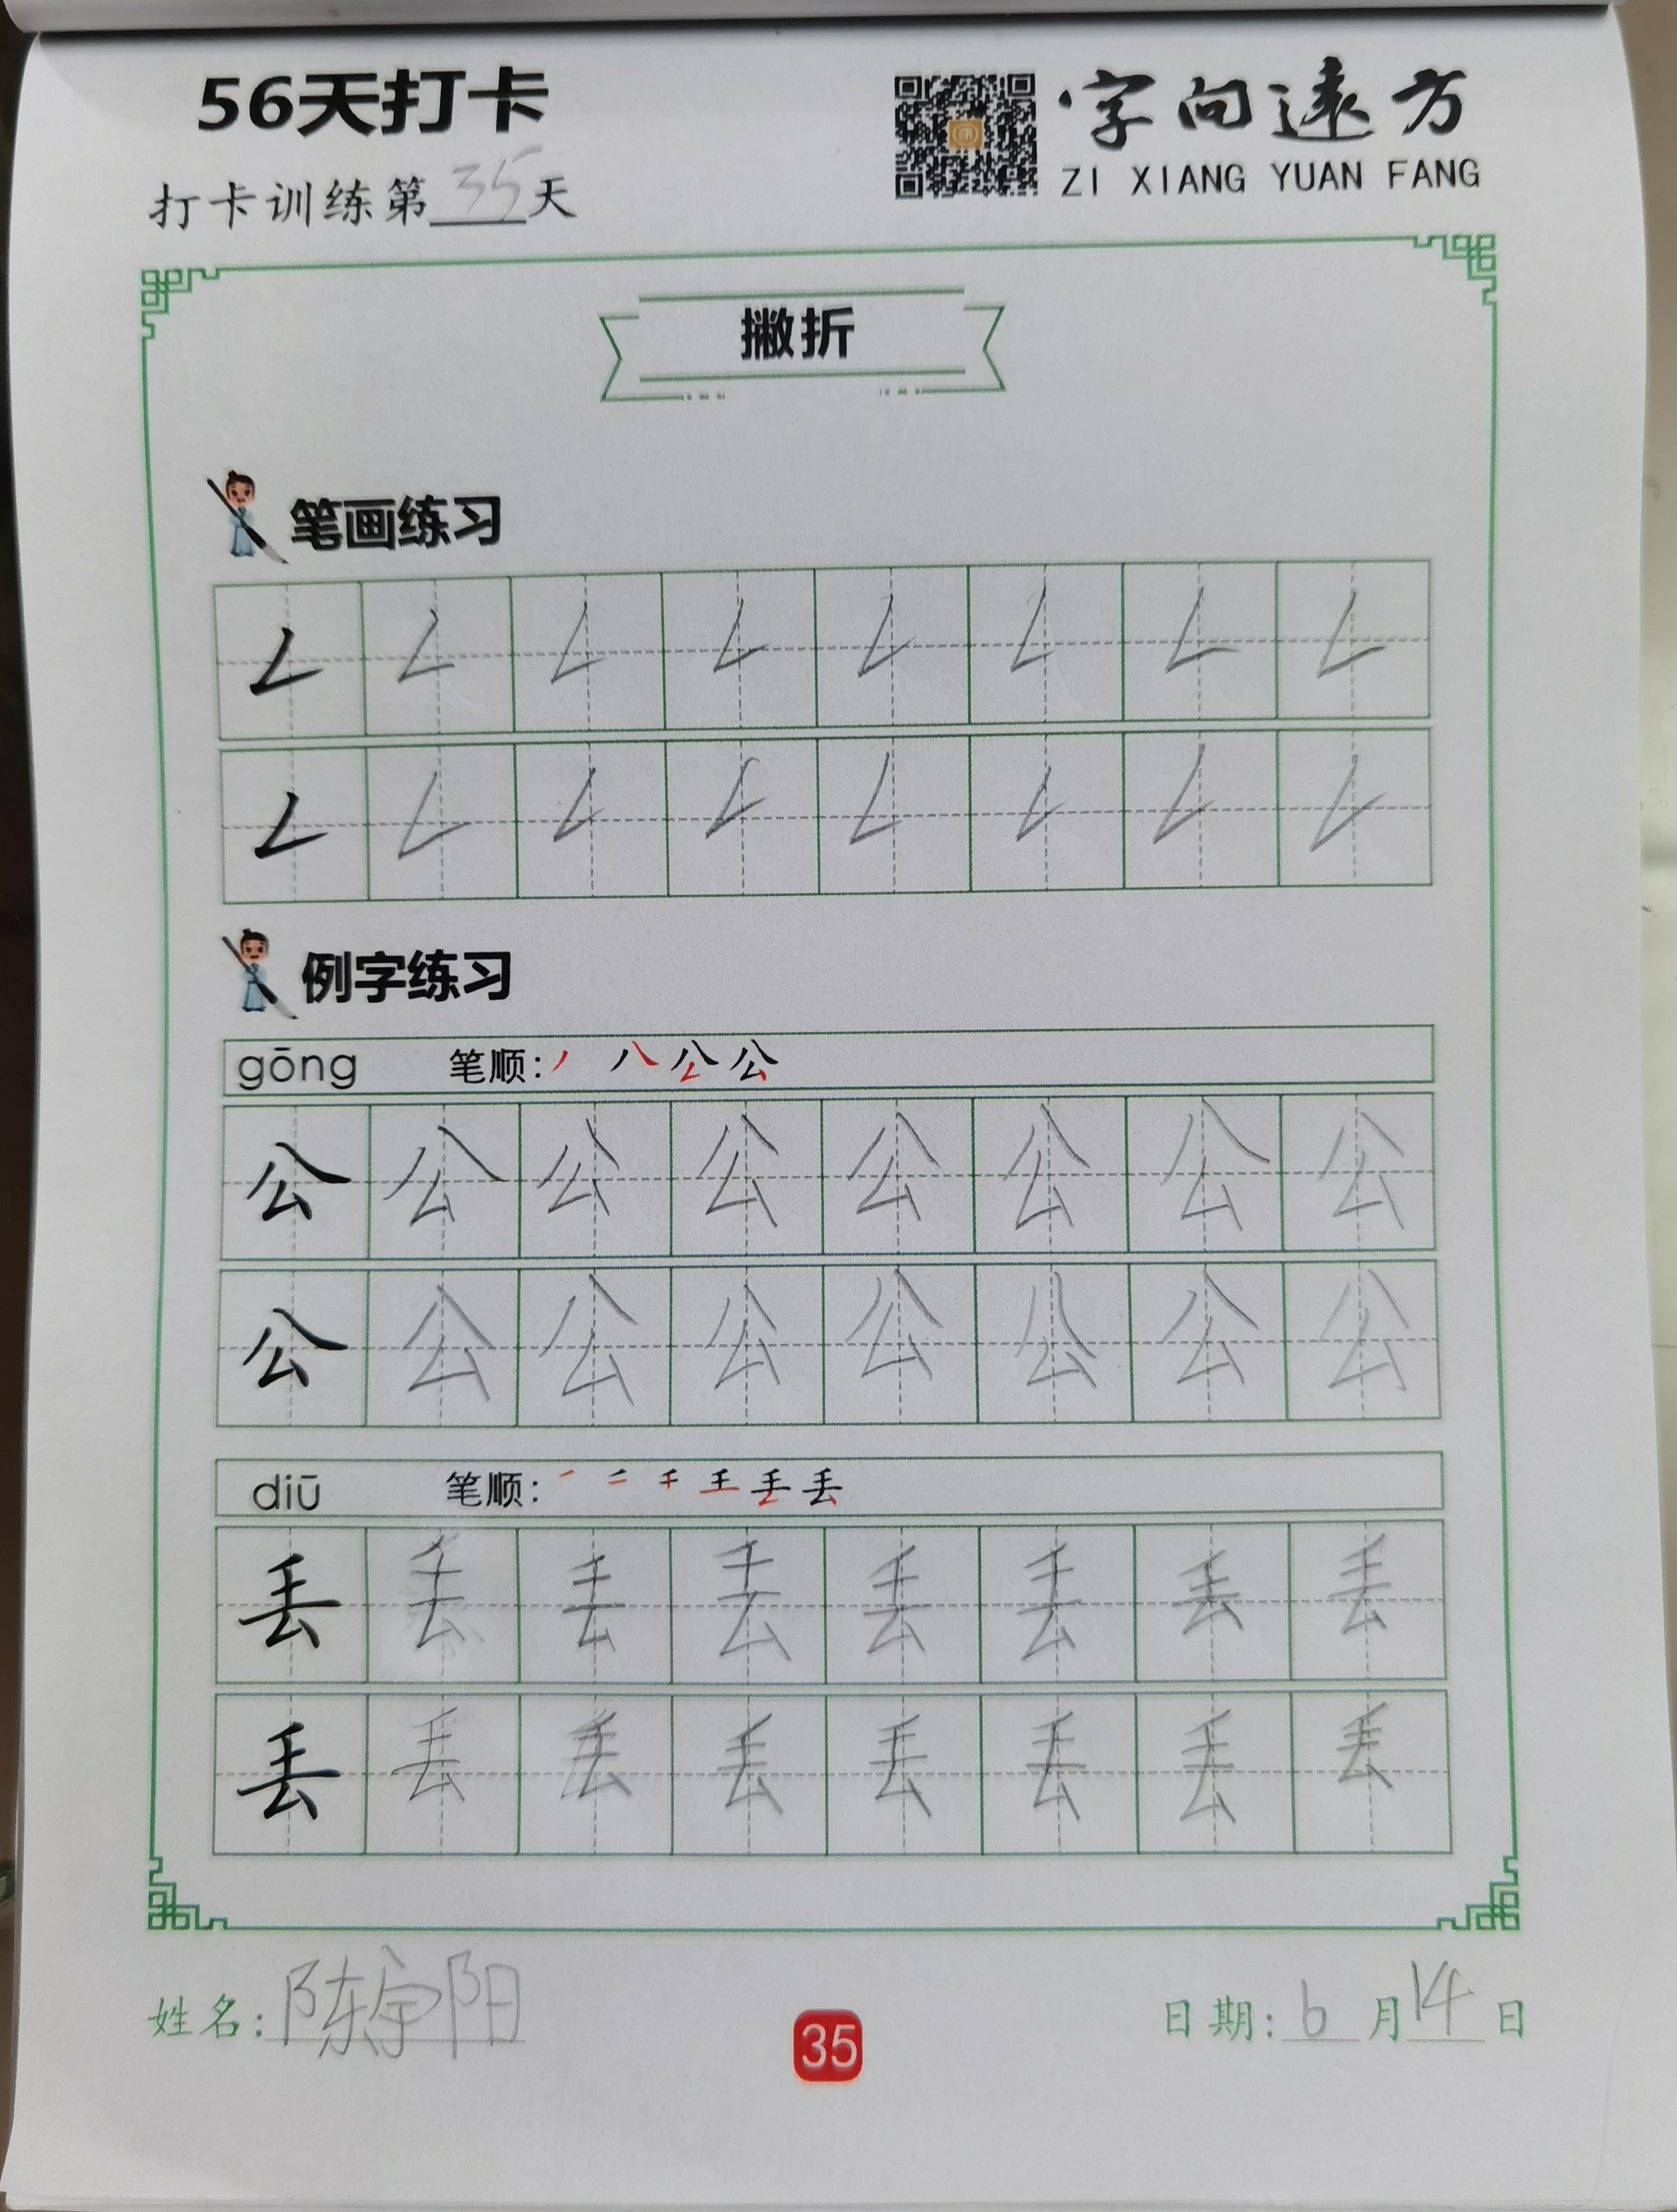 56天打卡
字向遠方
ZI XIANG YUAN FANG
打卡训练第35天
撇折
笔画练习
例字练习
gōng 笔顺: 丿 八 公 公
公 公 公 公 公 公 公 公
公 公 公 公 公 公 公 公
diū 笔顺:
丢 丢 丢 丢 丢 丢 丢 丢
丢 丢 丢 丢 丢 丢 丢 丢
姓名: 陈宇阳
35
日期: 6月14日